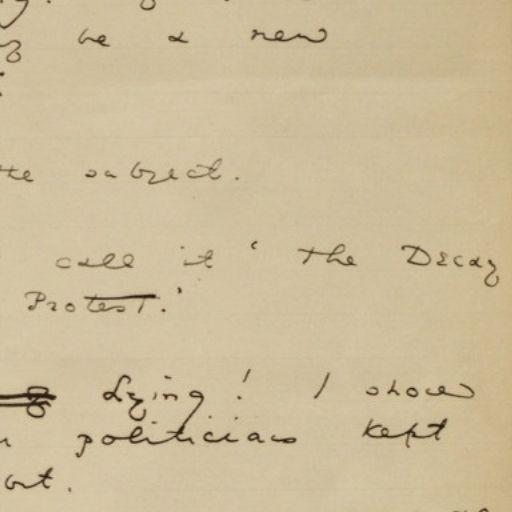 be a new
the subject.
call it ' The Decay
Protest.'
Lying! I should
politicians kept